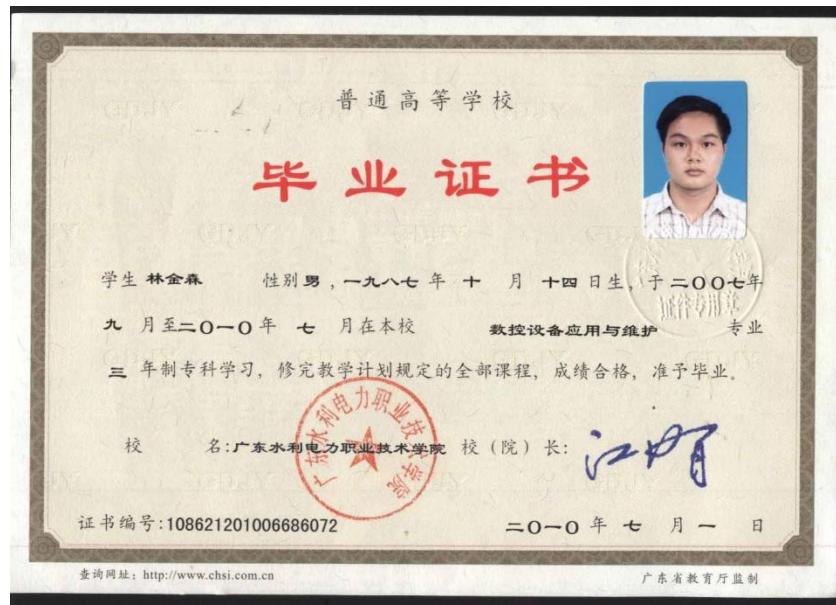 普通高等学校
毕业证书
学生 林金森 性别 男，一九八七 年 十 月 十四 日生，于 二〇〇七年
九 月至二〇一〇年 七 月在本校 数控设备应用与维护 专业
三 年制专科学习，修完教学计划规定的全部课程，成绩合格，准予毕业。
校 名:广东水利电力职业技术学院 校（院）长：
广东水利电力职业技术学院
证件专用章
证书编号:108621201006686072 二〇一〇 年 七 月 一 日
查询网址：http://www.chsi.com.cn 广东省教育厅监制